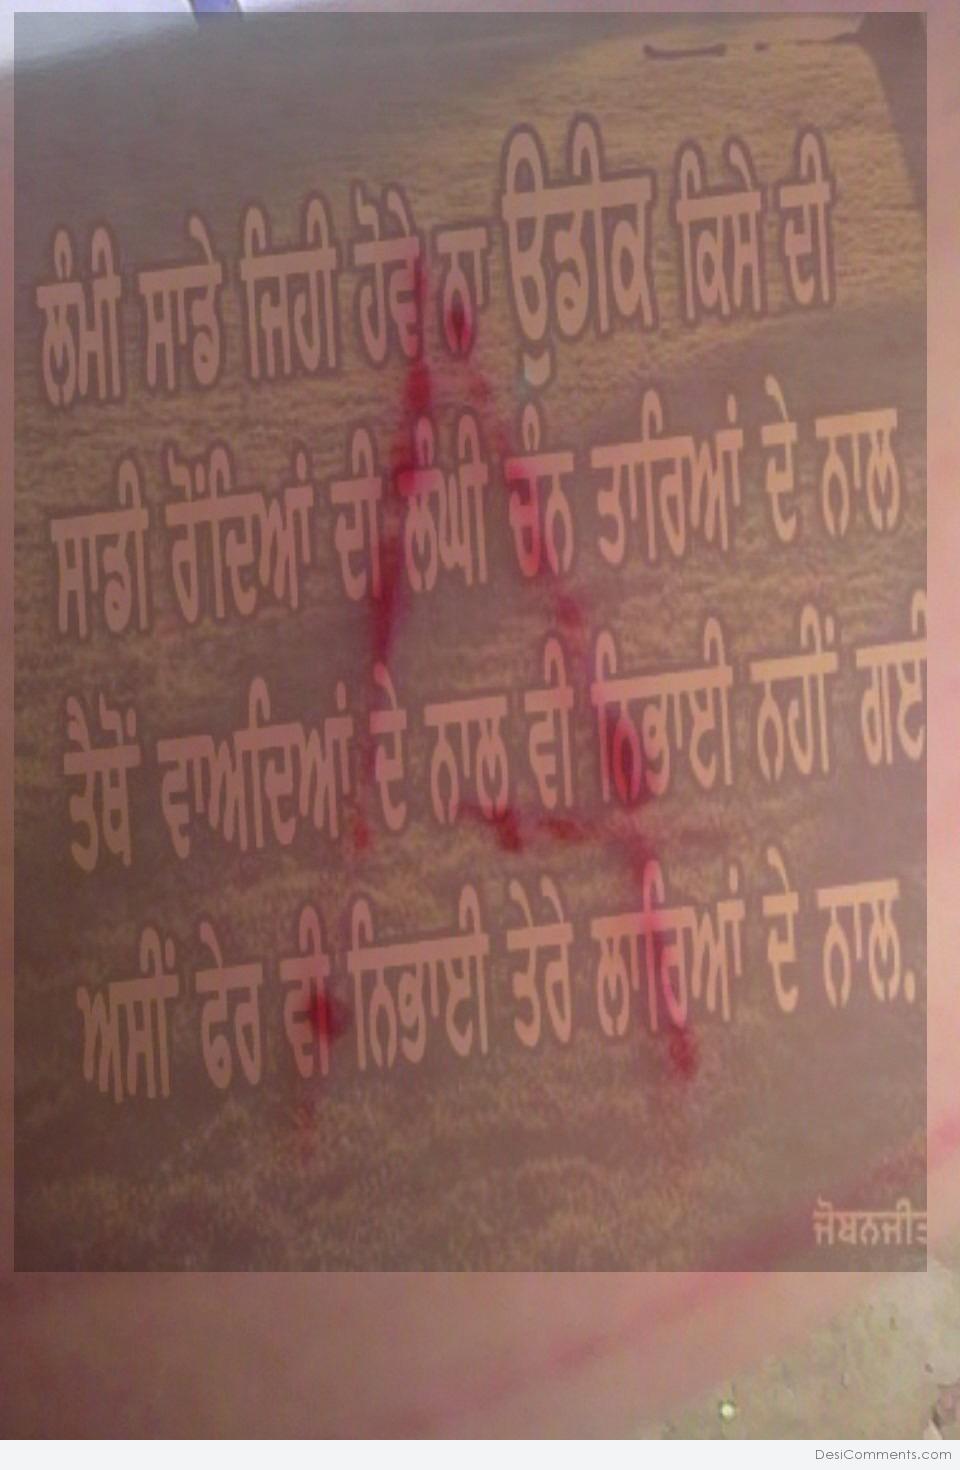 ਲੰਮੀ ਸਾਡੇ ਜਿਹੀ ਹੋਵੇ ਨਾ ਉਡੀਕ ਕਿਸੇ ਦੀ
ਸਾਡੀ ਰੋਂਦਿਆਂ ਦੀ ਲੰਘੀ ਚੰਨ ਤਾਰਿਆਂ ਦੇ ਨਾਲ
ਤੈਥੋਂ ਵਾਅਦਿਆਂ ਦੇ ਨਾਲ ਵੀ ਨਿਭਾਈ ਨਹੀਂ ਗਈ
ਅਸੀਂ ਫੇਰ ਵੀ ਨਿਭਾਈ ਤੇਰੇ ਲਾਰਿਆਂ ਦੇ ਨਾਲ.
ਜੋਬਨਜੀਤ
A
DesiComments.com